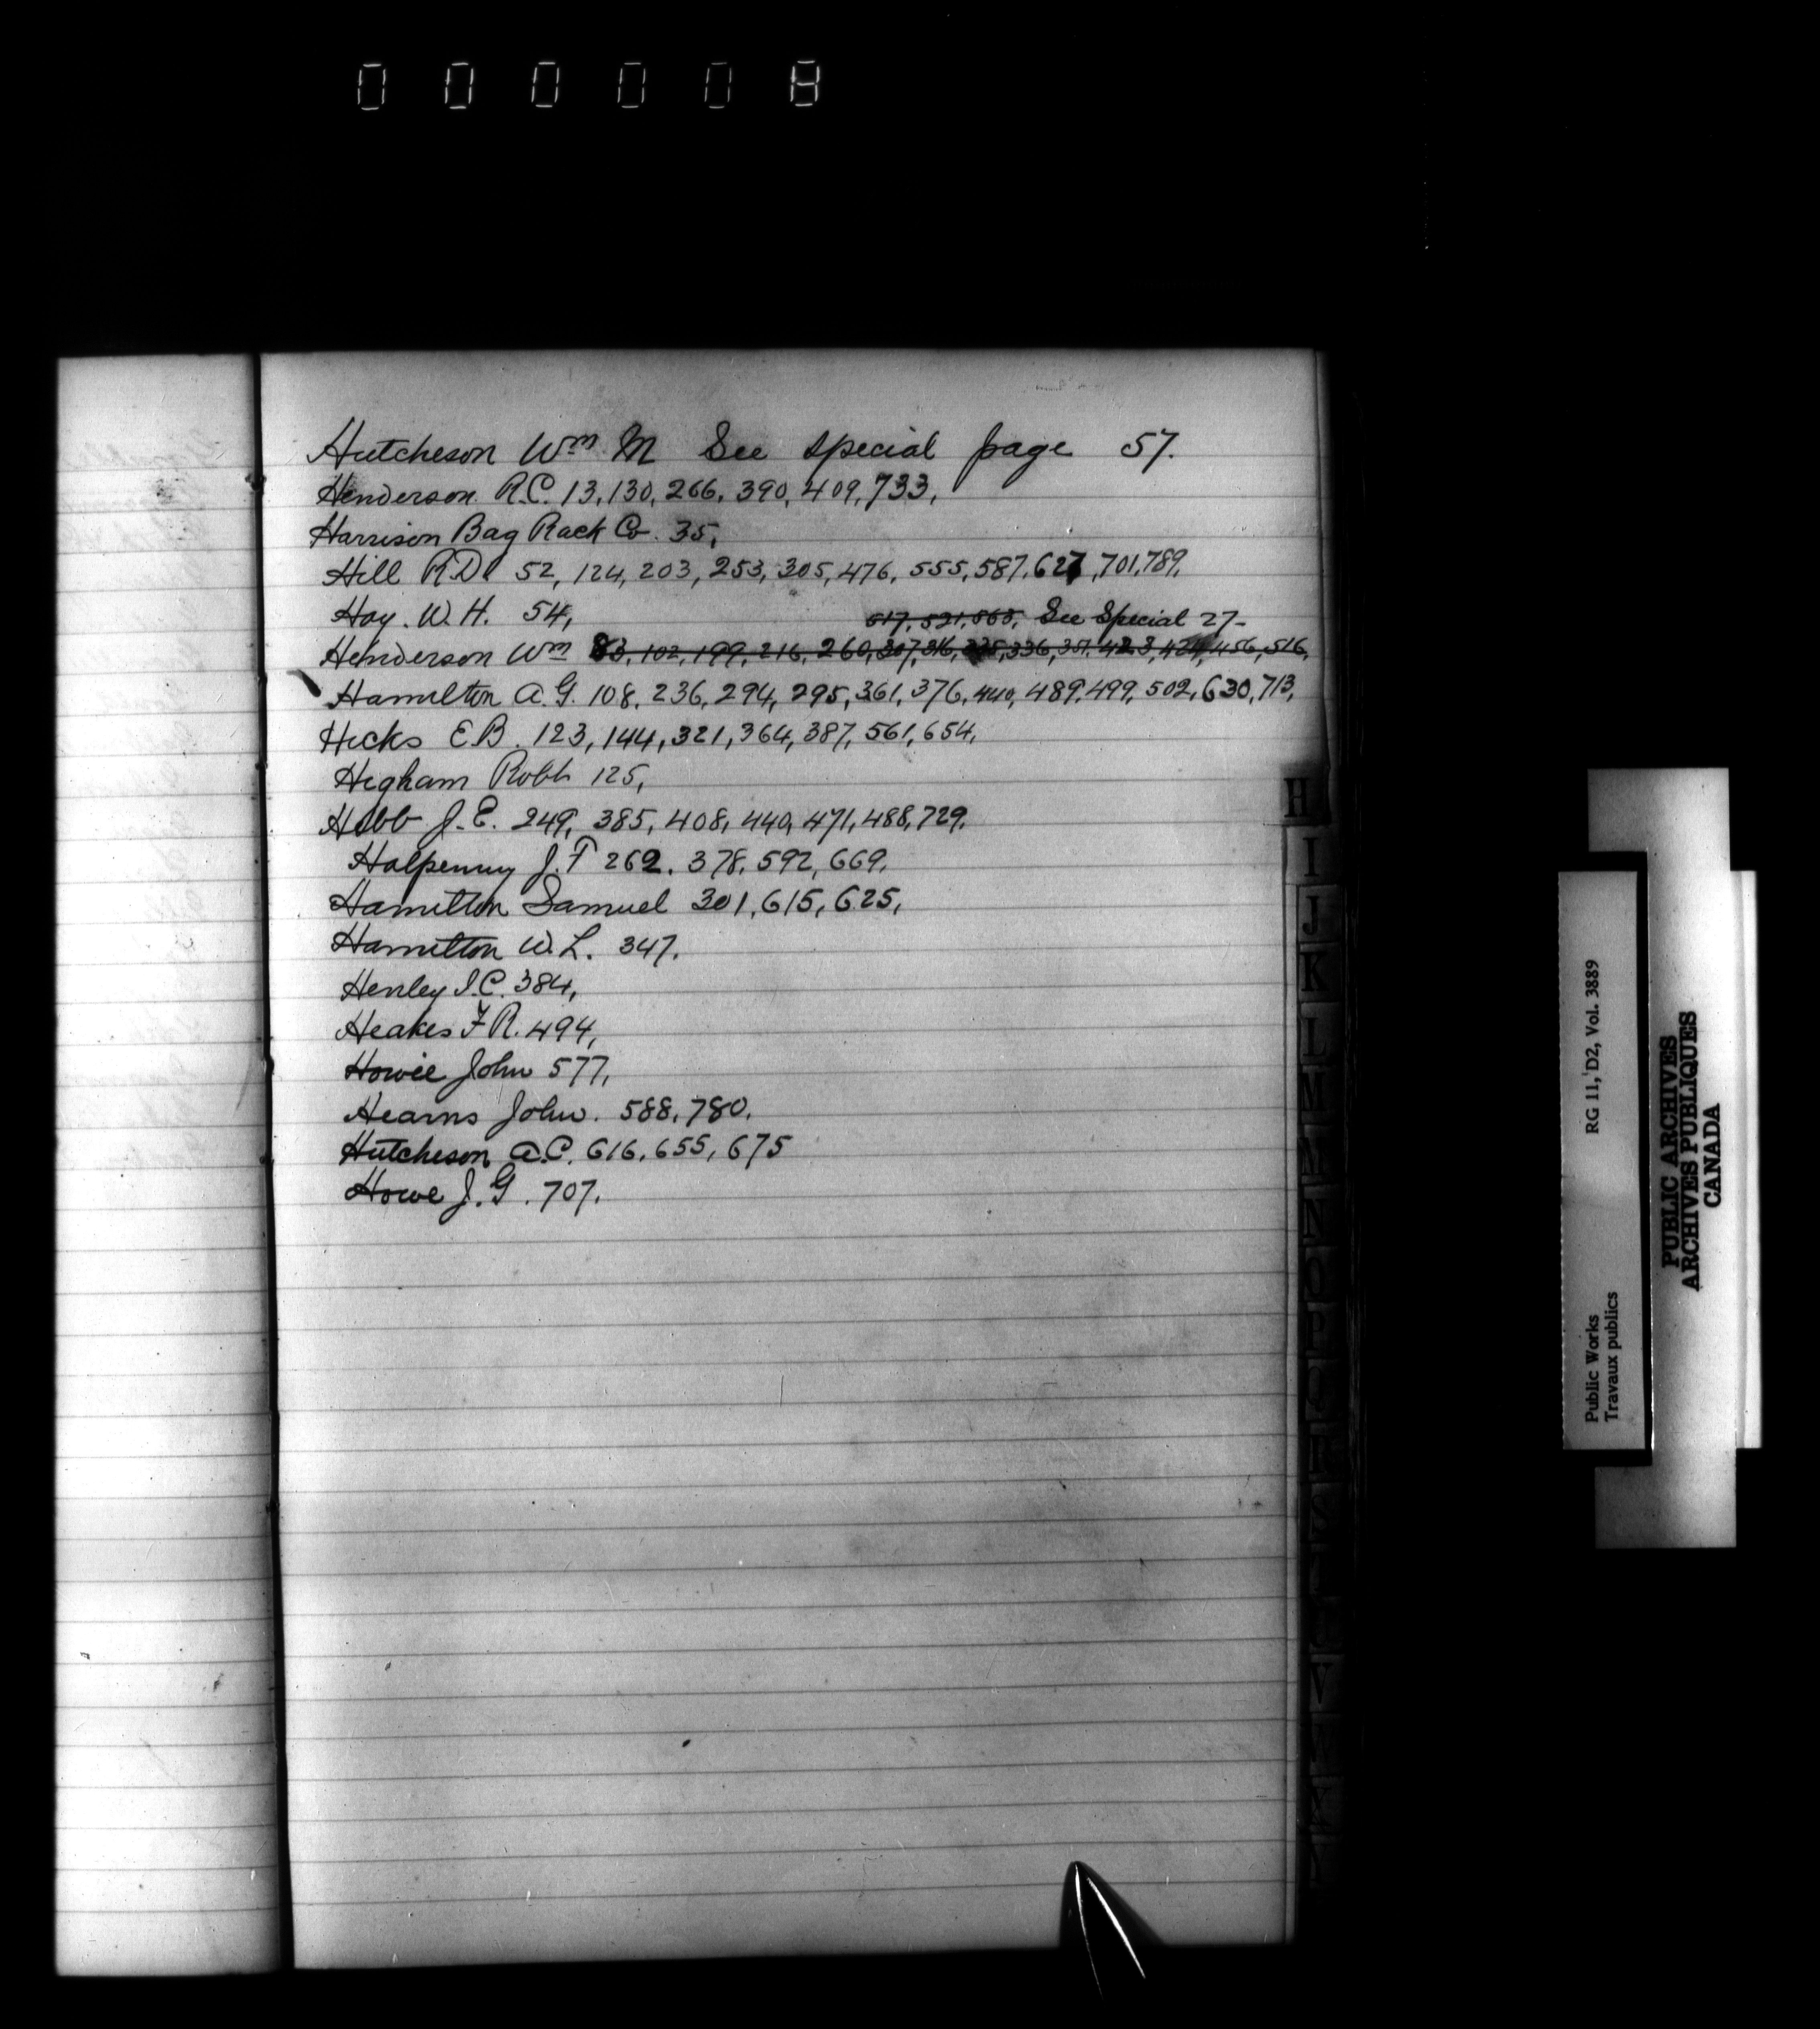 000008
Hutcheson Wm M See special page 57.
Henderson R.C. 13, 130, 266, 390, 409, 733,
Harrison Bag Rack Co. 35,
Hill R.D. 52, 124, 203, 253, 305, 476, 555, 587, 627, 701, 789,
Hay. W. H. 54,
517, 521, 563, See Special 27-
Henderson Wm 83, 102, 199, 216, 260, 307, 316, 336, 351, 423, 456, 516,
Hamilton A. G. 108, 236, 294, 295, 361, 376, 440, 489, 499, 502, 630, 713,
Hicks E B. 123, 144, 321, 364, 387, 561, 654,
Higham Robt 125,
Hobb J. E. 249, 385, 408, 440, 471, 488, 729,
Halpenny J. T 262. 378, 592, 669,
Hamilton Samuel 301, 615, 625,
Hamilton W. L. 347.
Henley I. C. 384,
Heakes F R. 494,
Howie John 577,
Hearns John. 588, 780,
Hutcheson A.C. 616, 655, 675
Howe J. G. 707.
H
I
J
K
L
M
N
O
P
V
Public Works
Travaux publics
RG 11, D2, Vol. 3889
PUBLIC ARCHIVES
ARCHIVES PUBLIQUES
CANADA